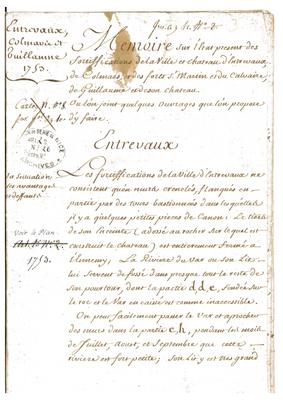 Entrevaux,
Colmars et
Guillaume
1753.
Memoire sur l'état present des
fortiffications de la Ville et chateau d'Entrevaux
de Colmars, et des forts St Martin et du Calvaire
de Guillaume et de son chateau.
Ou l'on joint quelques ouvrages que l'on propose
d'y faire.
ARCHIVES
Entrevaux
La situation
ses avantages
et deffauts
Les fortiffications de la Ville d'Entrevaux ne
consistent qu'en murs crenelés, flanqués en
partie par des tours bastionnées dans lesquelles
il y a quelques petites pieces de Canon: Le tiers
de son enceinte (adossé au rocher sur lequel est
construit le chateau) est entierement fermé à
l'ennemy, La Riviere du var ou son Lit
lui servent de fossé dans presque tout le reste de
son pourtour, dont la partie d,d,e, fondée sur
le roc et le Var en caisse est comme inaccessible.
Voir le Plan
1753.
On peut facilement passer le Var et aprocher
des murs dans la partie c,h, pendant les mois
de Juillet, aoust, et Septembre que cette
riviere est fort petite; son Lit y est tres grand